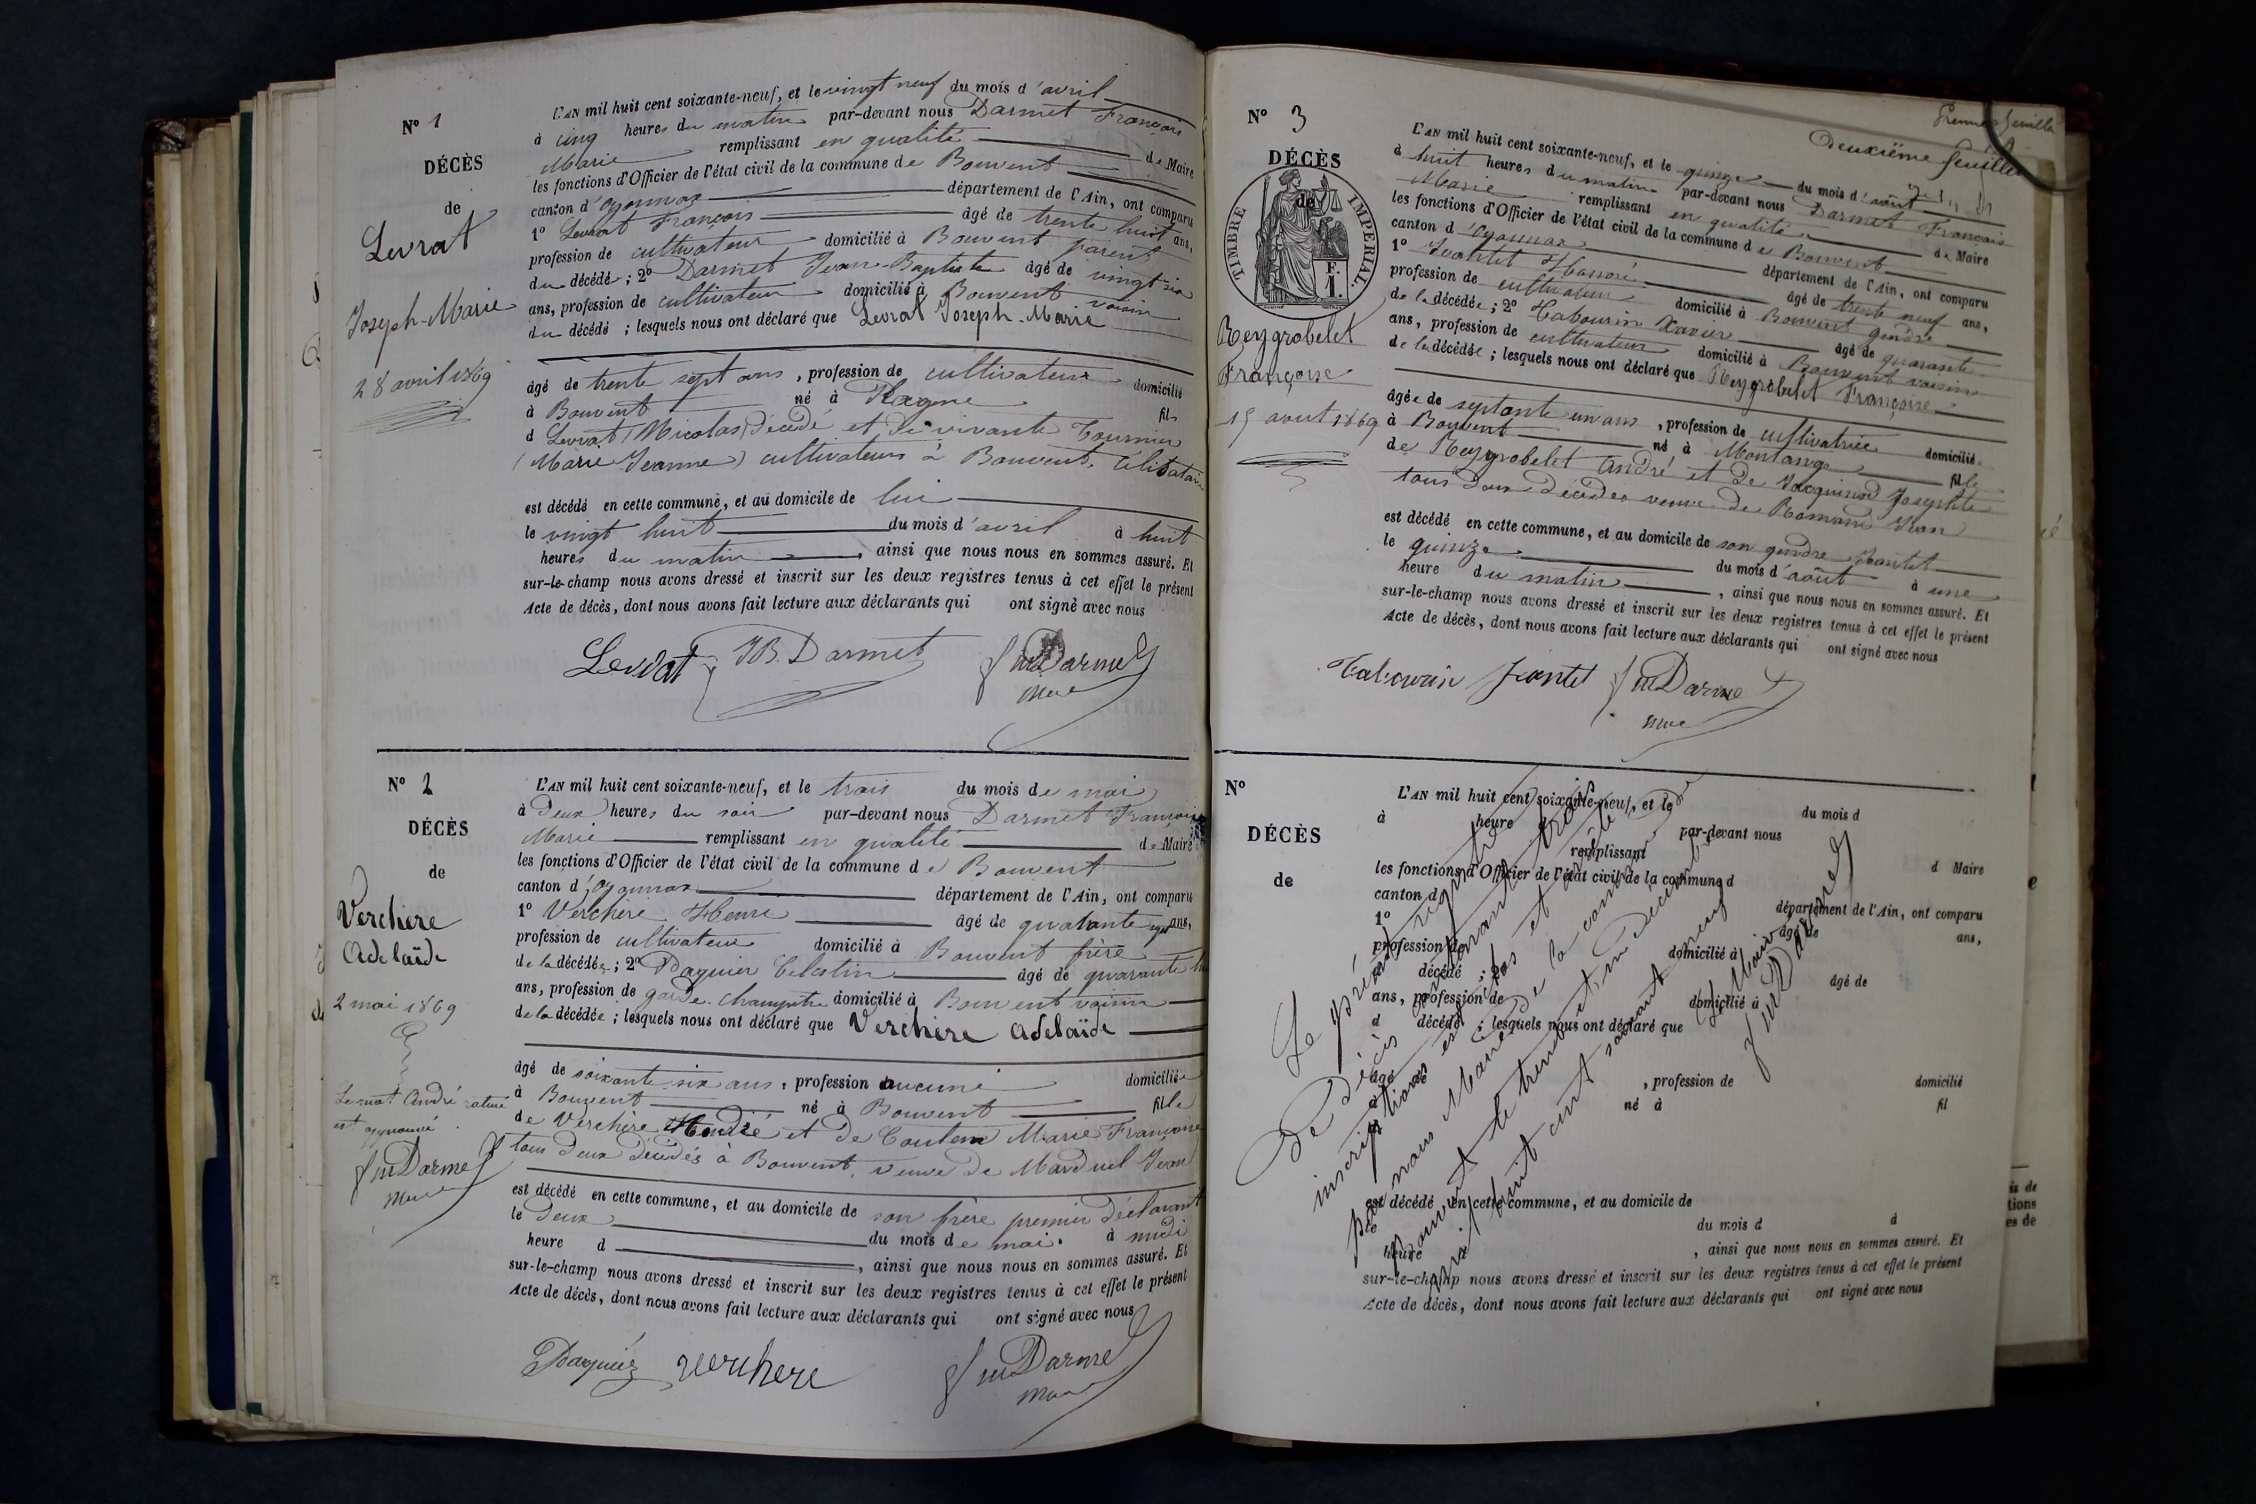 Nº 1
DÉCÈS
de
Levrat
Joseph-Marie
28 avril 1869
L'AN mil huit cent soixante-neuf, et le vingt neuf du mois d'avril
à cinq heures du matin par-devant nous Darmet François
Marie remplissant en qualité de Maire
les fonctions d'Officier de l'état civil de la commune de Bouvent
canton d'oyonnax département de l'Ain, ont comparu
1º Levrat François âgé de trente huit ans,
profession de cultivateur domicilié à Bouvent parent
du décédé ; 2º Darmet Jean-Baptiste âgé de vingt six
ans, profession de cultivateur domicilié à Bouvent voisin
du décédé ; lesquels nous ont déclaré que Levrat Joseph-Marie
âgé de trente sept ans, profession de cultivateur domicilié
à Bouvent né à Plagne fils
d Levrat (Nicolas) décédé et de vivante Tournier
(Marie Jeanne) cultivateurs à Bouvent, célibataire
est décédé en cette commune, et au domicile de lui
le vingt huit du mois d'avril à huit
heures du matin, ainsi que nous nous en sommes assuré. Et
sur-le-champ nous avons dressé et inscrit sur les deux registres tenus à cet effet le présent
Acte de décès, dont nous avons fait lecture aux déclarants qui ont signé avec nous
Levrat JB. Darmet fm Darmet
Maire
Nº 2
DÉCÈS
de
Verchère
Adelaïde
2 mai 1869
Le mot André raturé
est approuvé
fm Darmet
Maire
L'AN mil huit cent soixante-neuf, et le trois du mois de mai
à deux heures du soir par-devant nous Darmet François
Marie remplissant en qualité de Maire
les fonctions d'Officier de l'état civil de la commune de Bouvent
canton d'oyonnax département de l'Ain, ont comparu
1º Verchère Henri âgé de quarante ans,
profession de cultivateur domicilié à Bouvent frère
de la décédée ; 2º Daguier Célestin âgé de quarante
ans, profession de garde-champêtre domicilié à Bouvent voisin
de la décédée ; lesquels nous ont déclaré que Verchère Adelaïde
âgé de soixante-six ans, profession aucune domiciliée
à Bouvent né à Bouvent fille
de Verchère et de Marie Françoise
tous deux décédés à Bouvent, veuve de Marduel Jean
est décédé en cette commune, et au domicile de son frère premier déclarant
le deux du mois de mai à midi
heure d , ainsi que nous nous en sommes assuré. Et
sur-le-champ nous avons dressé et inscrit sur les deux registres tenus à cet effet le présent
Acte de décès, dont nous avons fait lecture aux déclarants qui ont signé avec nous
Daguier verchere fm Darmet
Maire
Deuxième feuillet
Nº 3
DÉCÈS
de
TIMBRE IMPERIAL.
F. 1.
Reygrobelet
Françoise
15 aout 1869
L'AN mil huit cent soixante-neuf, et le quinze du mois d'août
à huit heures du matin par-devant nous Darmet François
Marie remplissant en qualité de Maire
les fonctions d'Officier de l'état civil de la commune de Bouvent
canton d'oyonnax département de l'Ain, ont comparu
1º Jeantet Honoré âgé de trente neuf ans,
profession de cultivateur domicilié à Bouvent gendre
de la décédée ; 2º Tabourin Xavier âgé de quarante
ans, profession de cultivateur domicilié à Bouvent voisin
de la décédée ; lesquels nous ont déclaré que Reygrobelet Françoise
âgée de septante un ans, profession de cultivatrice domicilié
à Bouvent né à Montange fille
de Reygrobelet André et de Jacquinod Josephte
tous deux décédés veuve de Romand Jean
est décédé en cette commune, et au domicile de son gendre Jeantet
le quinze du mois d'août à une
heure du matin, ainsi que nous nous en sommes assuré. Et
sur-le-champ nous avons dressé et inscrit sur les deux registres tenus à cet effet le présent
Acte de décès, dont nous avons fait lecture aux déclarants qui ont signé avec nous
Tabourin Jeantet fm Darmet
Maire
Nº
DÉCÈS
de
L'AN mil huit cent soixante-neuf, et le du mois d
à heure d par-devant nous
remplissant d Maire
les fonctions d'Officier de l'état civil de la commune d
canton d département de l'Ain, ont comparu
1º âgé de ans,
profession de domicilié à
d décédé ; 2º âgé de
ans, profession de domicilié à
d décédé ; lesquels nous ont déclaré que
âgé de , profession de domicilié
à né à fil
est décédé en cette commune, et au domicile de
le du mois d à
heure , ainsi que nous nous en sommes assuré. Et
sur-le-champ nous avons dressé et inscrit sur les deux registres tenus à cet effet le présent
Acte de décès, dont nous avons fait lecture aux déclarants qui ont signé avec nous
Le présent registre
de Décès contenant trois
inscriptions est clos et arrêté
par nous Maire de la commune de
Bouvent le trente et un décembre
mil huit cent soixante neuf
Le Maire
fm Darmet